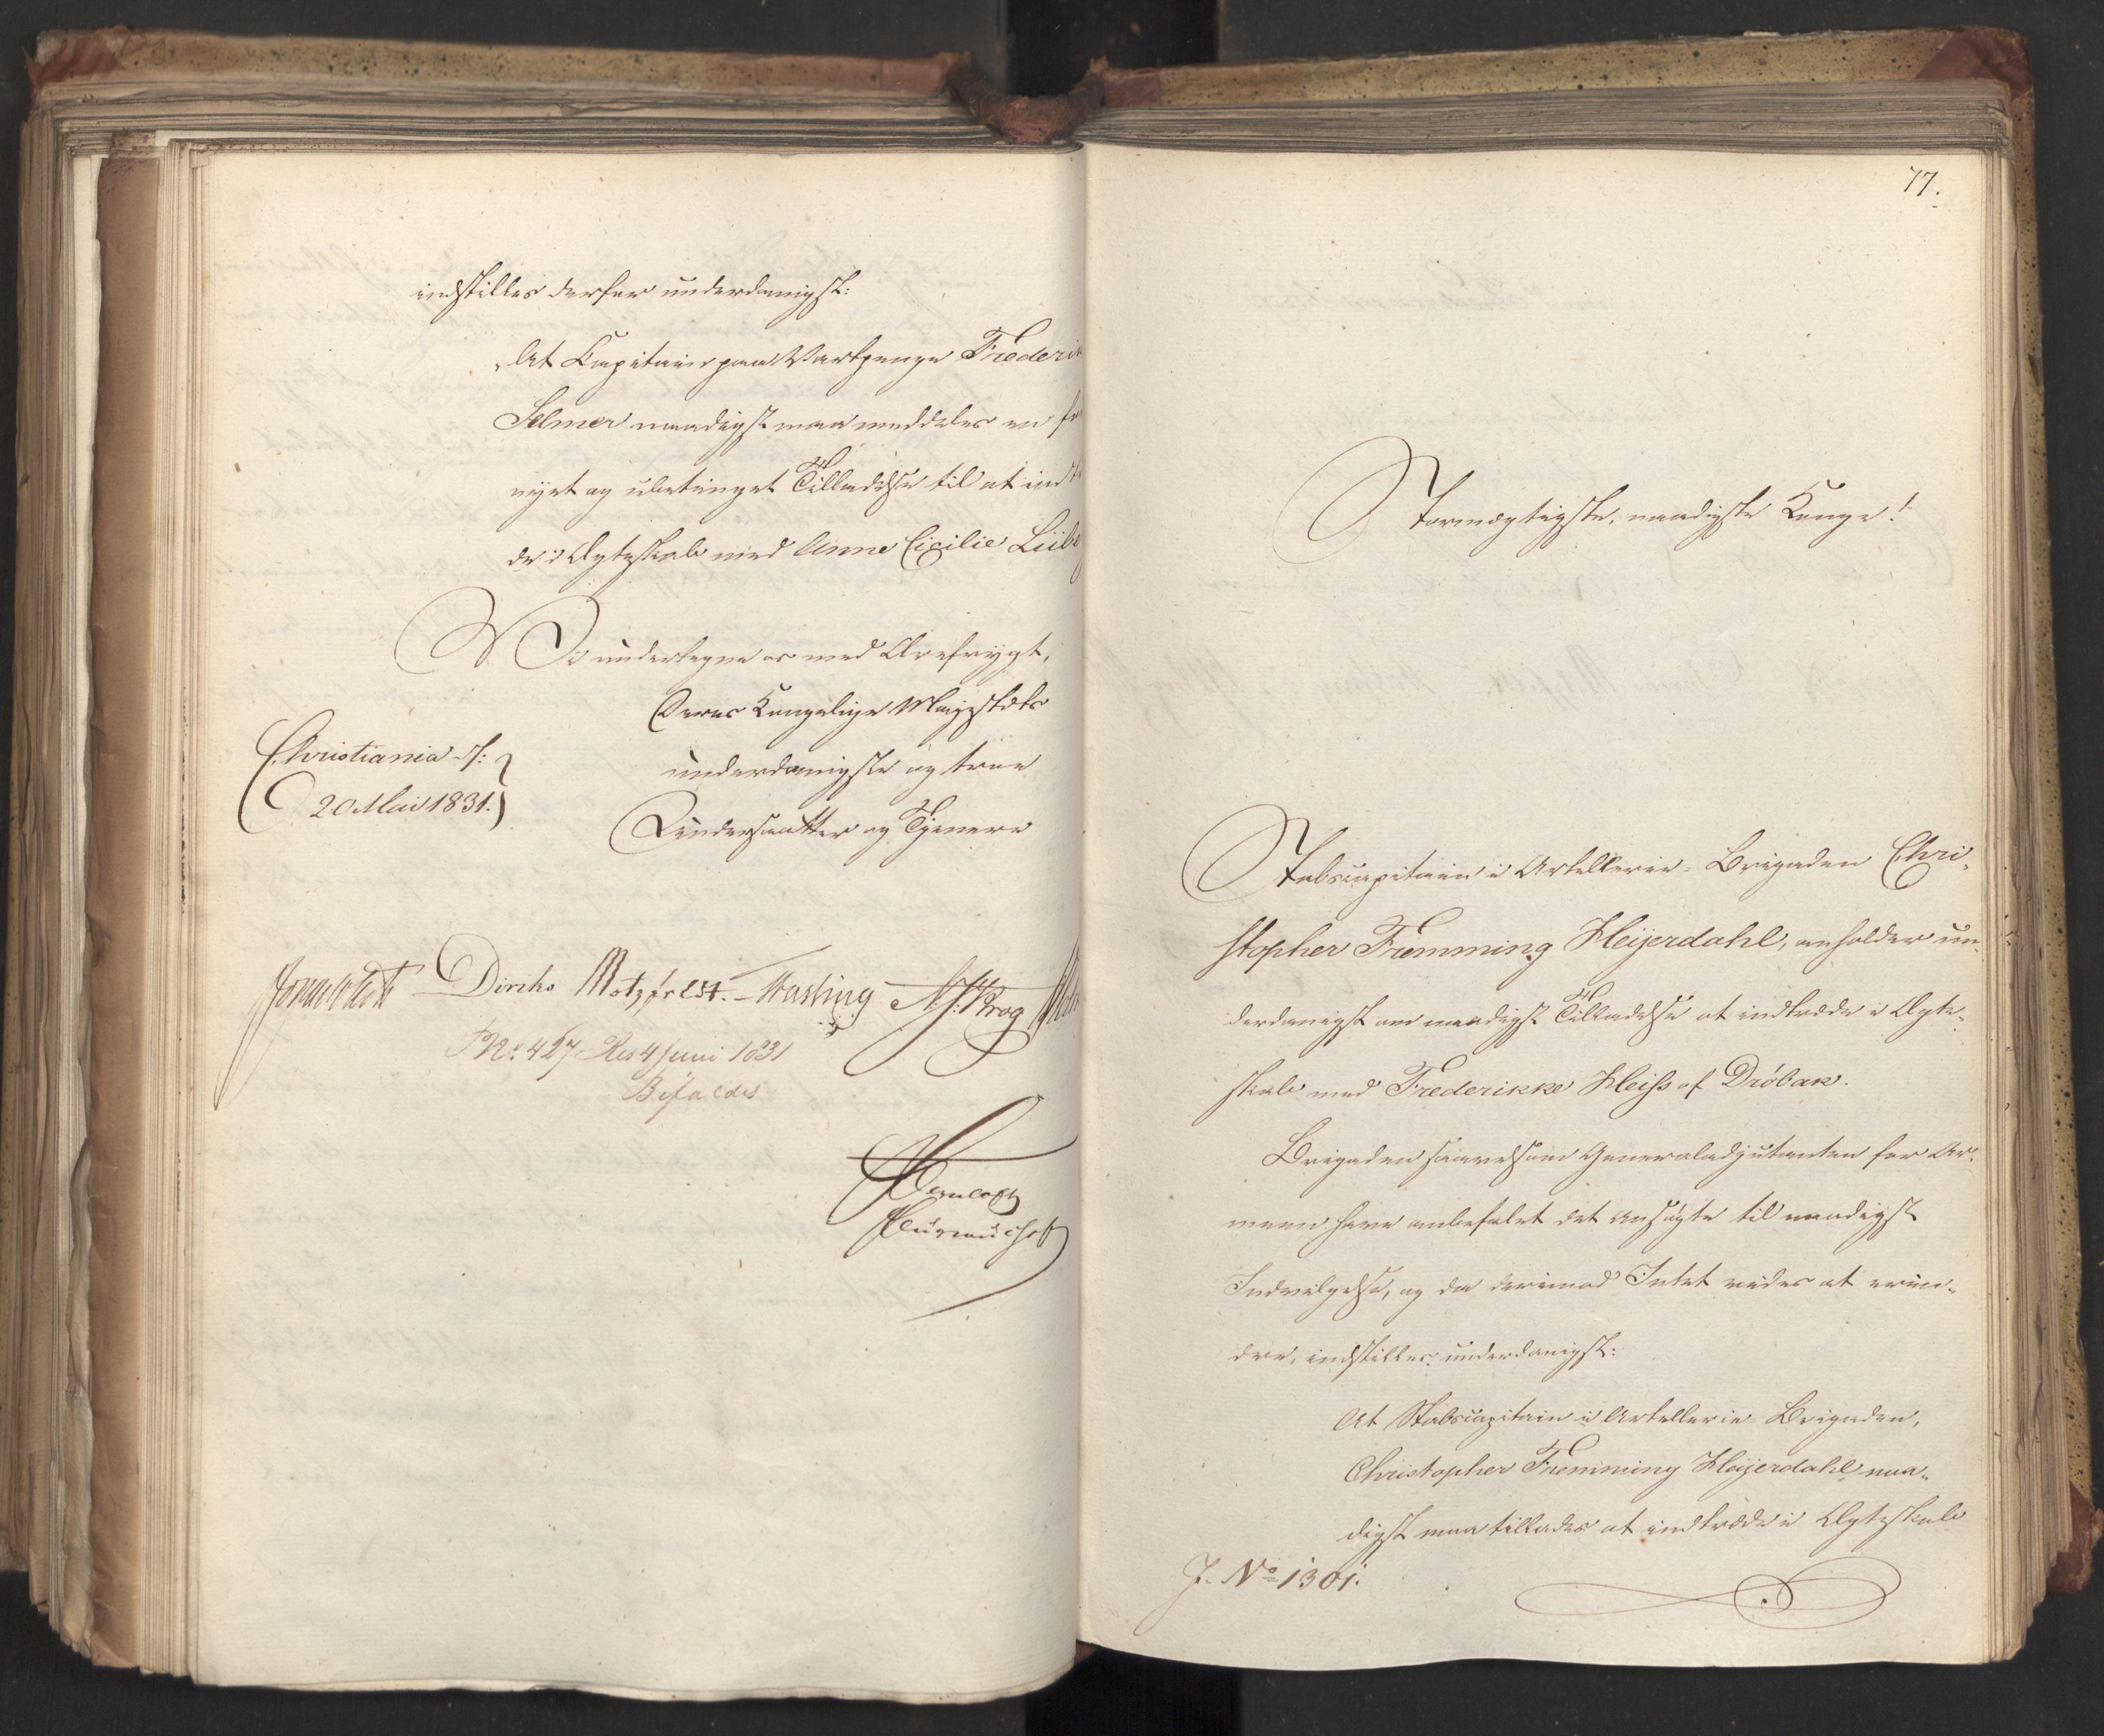 indstilles derfor underdanigst:
"At Capitain paa Vartpenge Frederik
Selmer naadigst maa meddeles en for
nyet og ubetinget Tilladelse til at indtræ
de i Ægteskab med Anne Cicilie Lüb
Vi undertegne os med Ærefrygt,
Deres Kongelige Majestæts
Christiania d:
20 Mai 1831.
underdanigste og troe
Undersaatter og Tjenere
Diriks Motzfeldt. Fasting N. J. Krog
No. 427 Res 4 Juni 1831
Bifaldes
77.
Stormægtigste, naadigste Konge!
Stabscapitain i Artellerie-Brigaden Chri-
stopher Fremming Heijerdahl, anholder un-
derdanigst om naadigst Tilladelse at indtræde i Ægte-
skab med Frederikke Heiss af Dröbak.
Brigaden saavelsom Generaladjutanten for Ar-
meen have anbefalet det Ansøgte til naadigst
Indvilgelse, og da derimod Intet vides at erin-
dre, indstilles underdanigst:
At Stabscapitain i Artellerie Brigaden,
Christopher Fremming Heijerdahl naa-
digst maa tillades at indtræde i Ægteskab
J. No 1301.